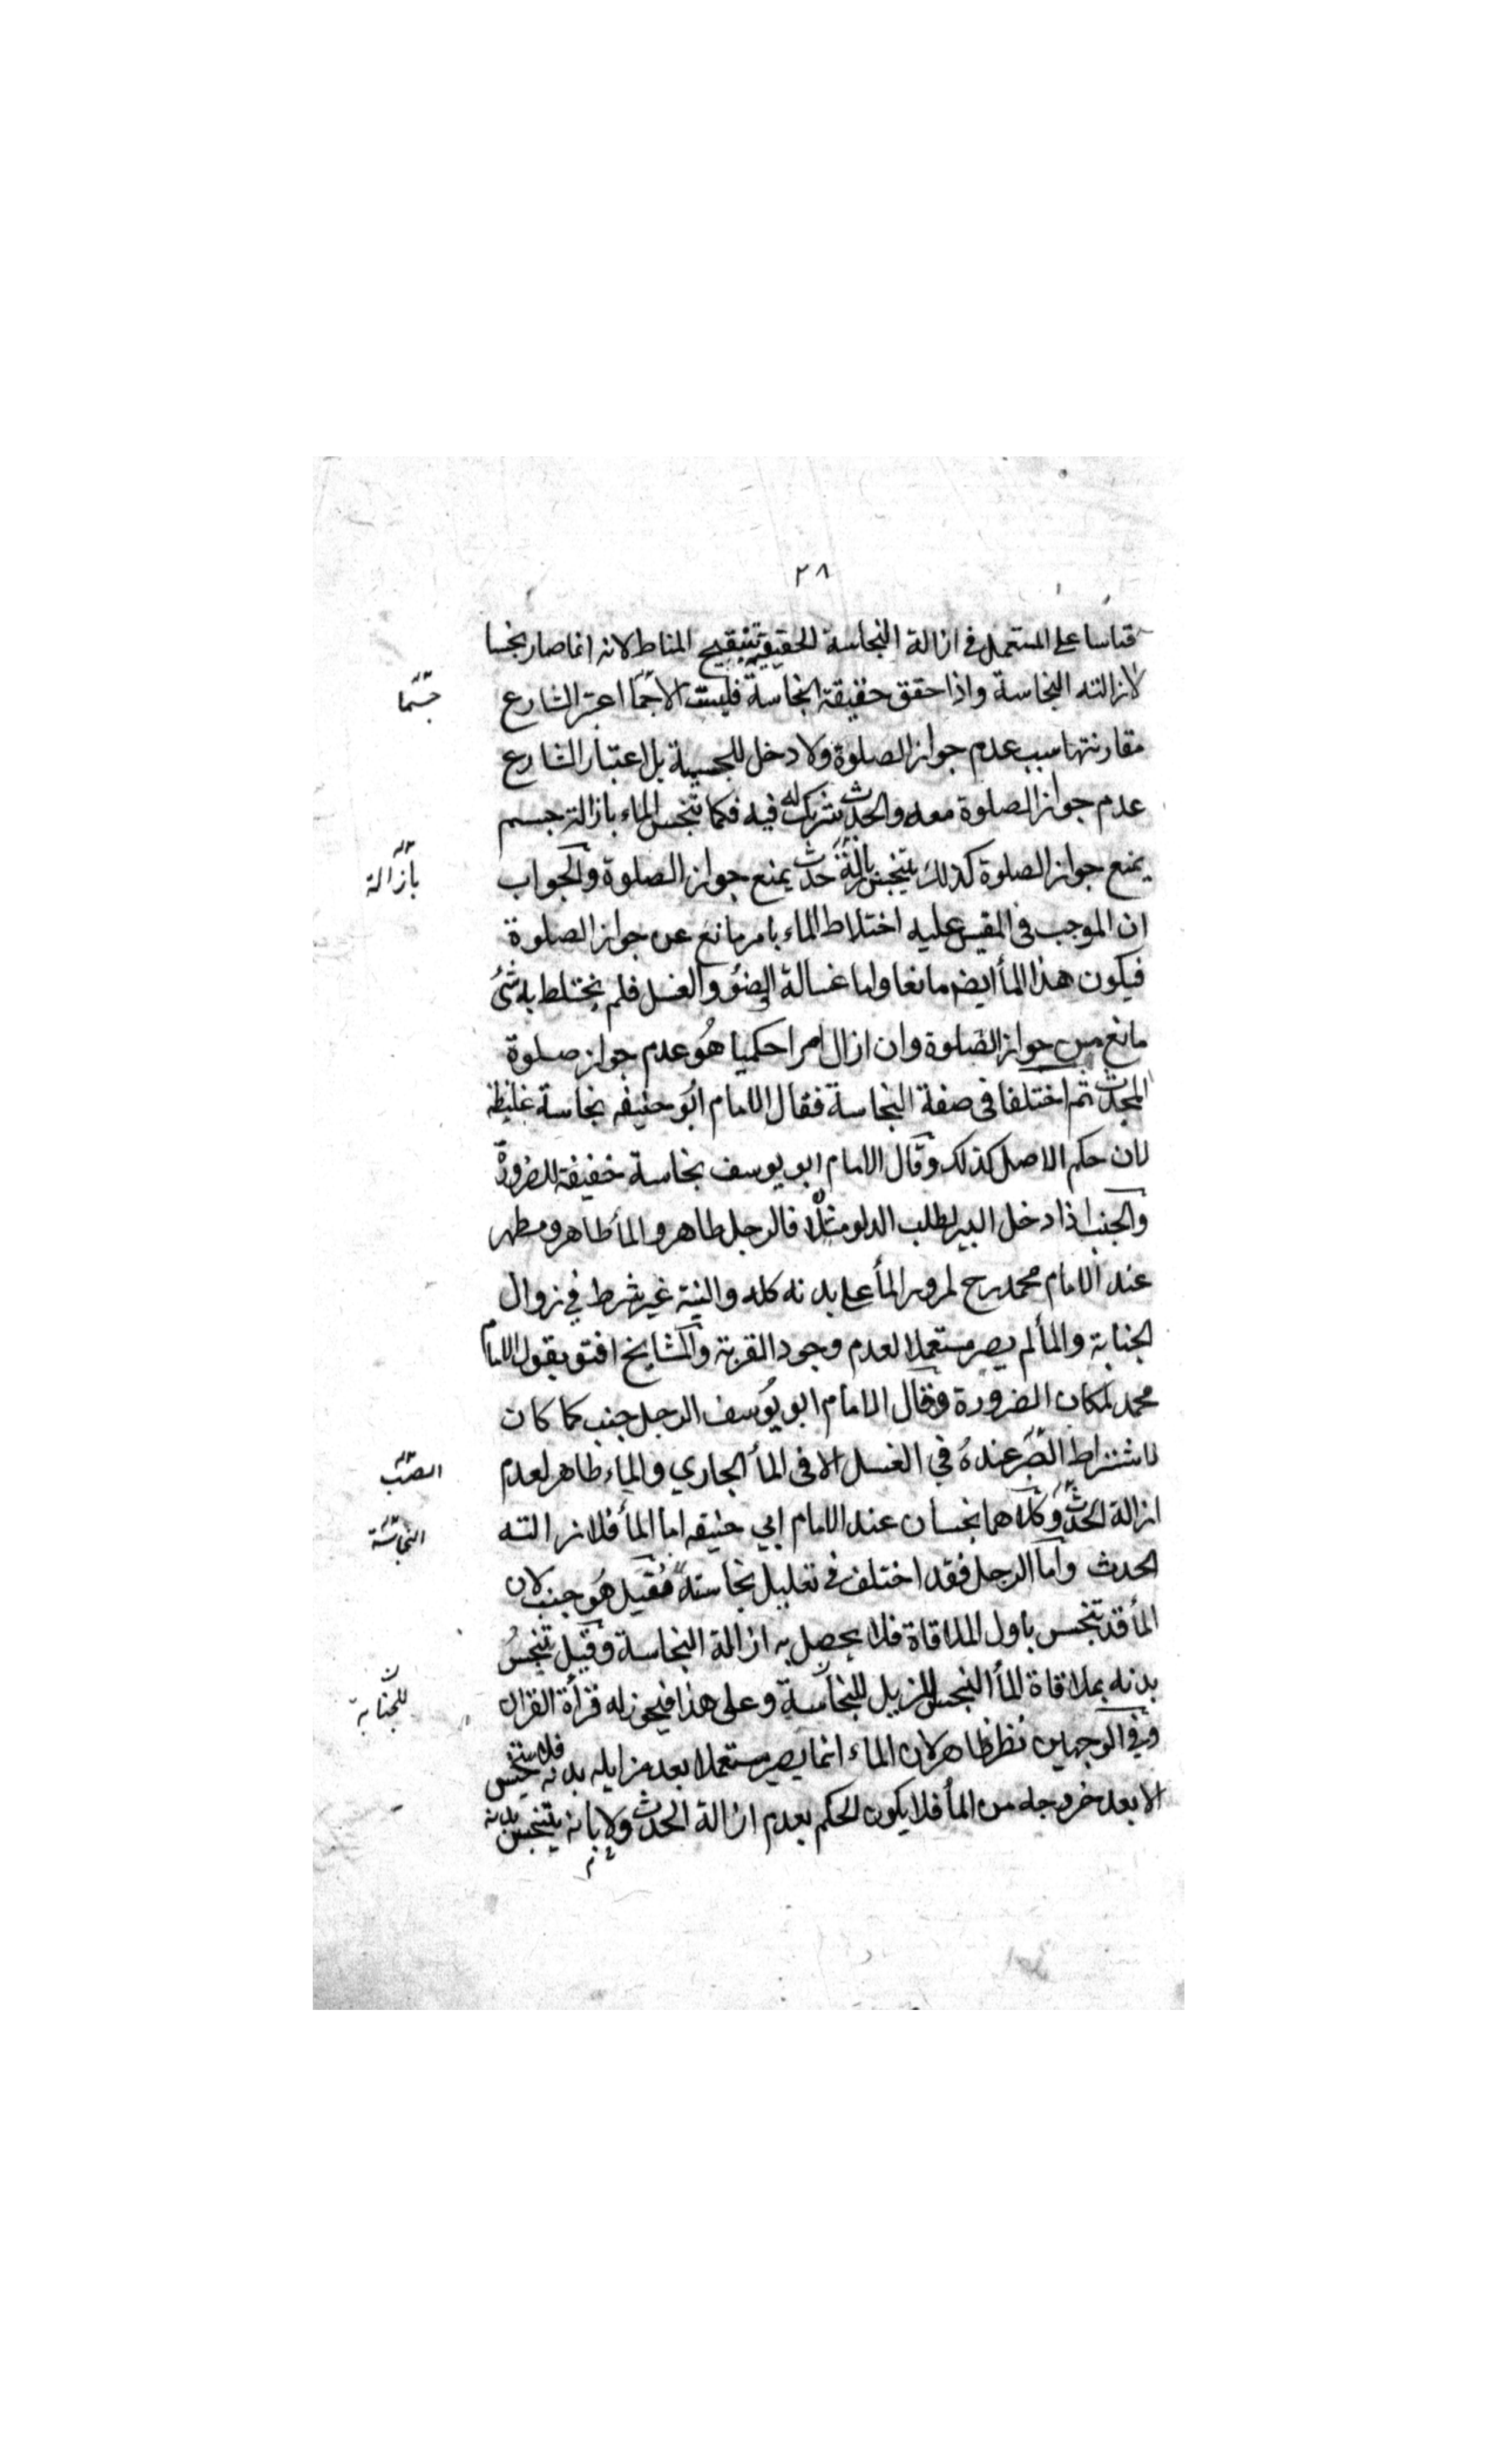 ٢٨
قياسا على المستعمل في ازالة النجاسة الحقيقية بتنقيح المناط لانه انما صار نجسا
لازالته النجاسة واذا حقق حقيقة النجاسة فليست الا جما اعتبر الشارع
جسما
مقارنتها سبب عدم جواز الصلوة ولا دخل للجسمية بل اعتبار الشارع
عدم جواز الصلوة معه والحدث شريك له فيه فكما تنجس الماء بازالة جسم
يمنع جواز الصلوة كذلك يتنجس بازالة حدث يمنع جواز الصلوة والجواب
بازالة
ان الموجب فى المقيس عليه اختلاط الماء بامر مانع عن جواز الصلوة
فيكون هذا المأ ايضا مانعا واما غسالة الوضؤ والغسل فلم يختلط به شئ
مانع من جواز الصلوة وان ازال امرا حكميا هو عدم جواز صلوة
المحدث ثم اختلفا فى صفة النجاسة فقال الامام ابو حنيفه نجاسة غليظة
لان حكم الاصل كذلك وقال الامام ابو يوسف نجاسة خفيفة للضرورة
والجنب اذا دخل البير لطلب الدلو مثلا فالرجل طاهر والمأ طاهر ومطهر
عند الامام محمد رح لمرور المأ على بدنه كله والنية غير شرط في زوال
الجنابة والمأ لم يصر مستعملا لعدم وجود القربة والمشايخ افتو بقول الامام
محمد لمكان الضرورة وقال الامام ابو يوسف الرجل جنب كما كان
لاشتراط الصب عنده في الغسل الا فى المأ الجاري والماء طاهر لعدم
الصب
ازالة الحدث وكلاهما نجسان عند الامام ابي حنيفه اما المأ فلازالته
النجاسة
الحدث واما الرجل فقد اختلف في تعليل نجاسته فقيل هو جنب لان
المأ قد تنجس باول الملاقاة فلا يحصل به ازالة النجاسة وقيل تنجس
بدنه بملاقاة المأ النجس المزيل للنجاسة وعلى هذا فيجوز له قرأة القران
للجنابة
وفي الوجهين نظر ظاهر لان الماء انما يصير مستعملا بعد مزايلة بدنه فلا يتنجس
الا بعد خروجه من المأ فلا يكون الحكم بعدم ازالة الحدث ولا بانه يتنجس بدنه